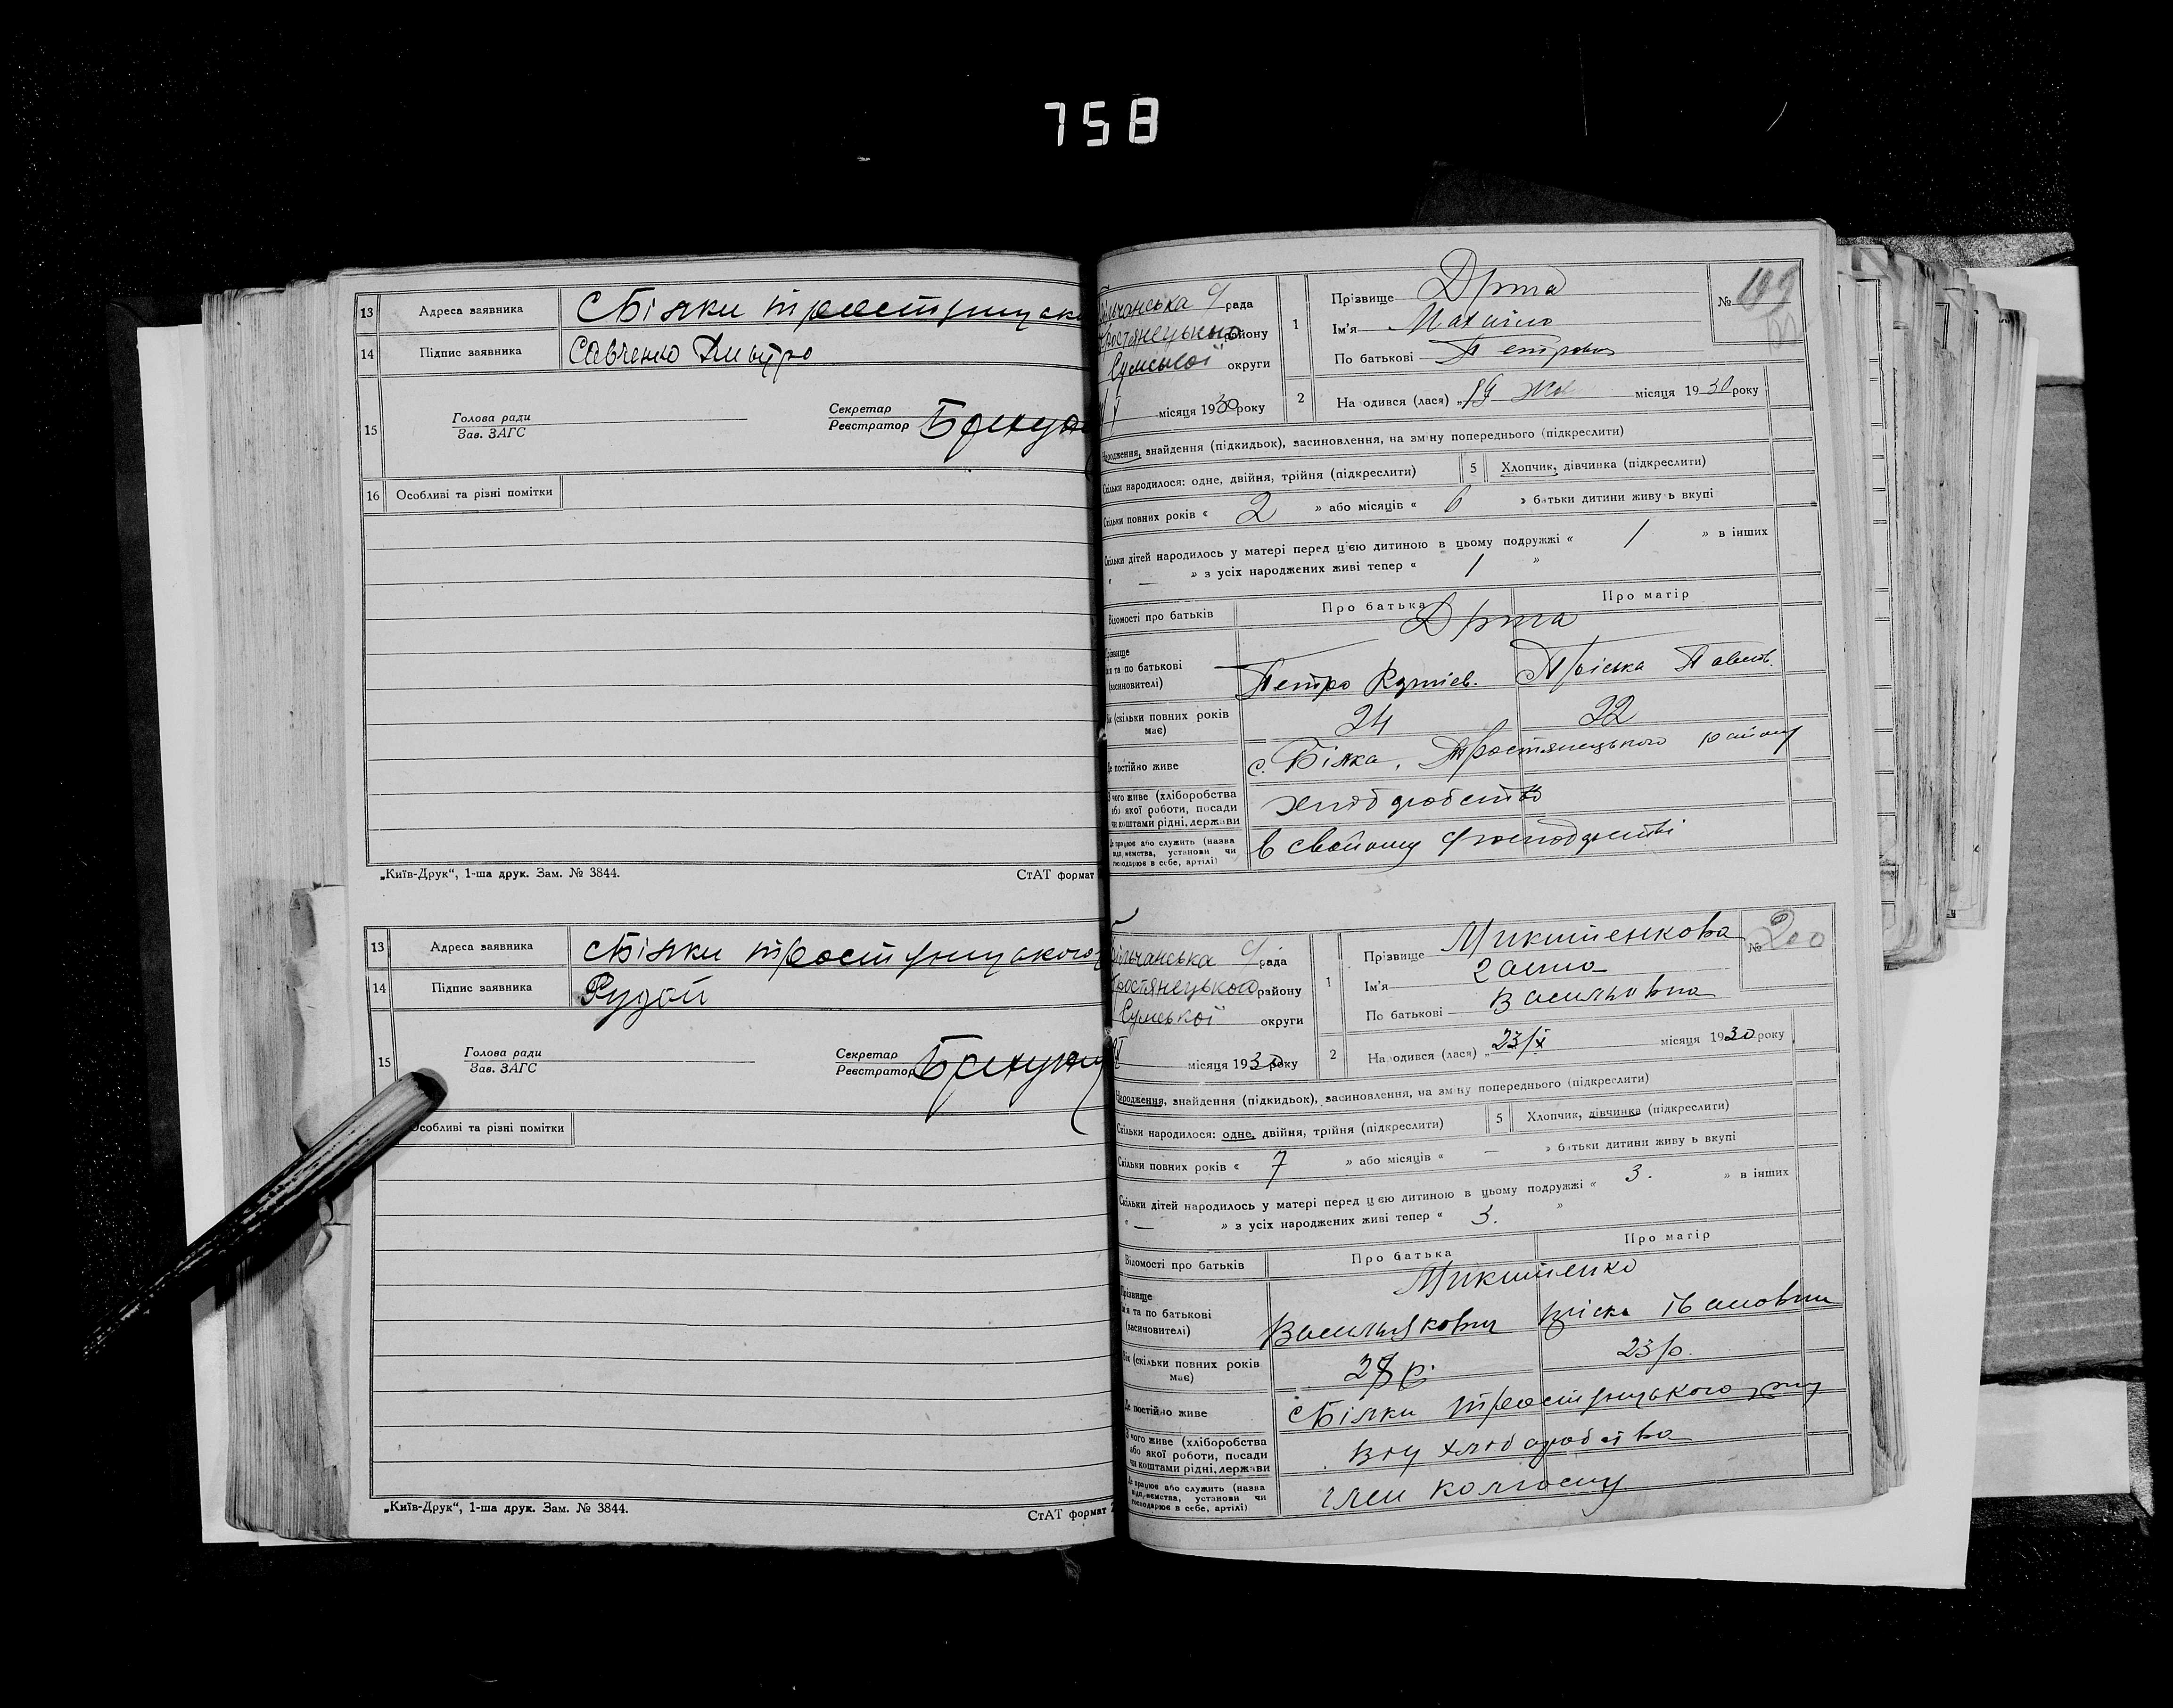 758
13 Адреса заявника с Білки тростянецько
14 Підпис заявника Савченко Дмитро
15 Голова ради
Зав. ЗАГС
Секретар
Реєстратор
16 Особливі та різні помітки
„Київ-Друк“, 1-ша друк. Зам. № 3844. СтАТ формат
13 Адреса заявника с Білки тростянецького
14 Підпис заявника Рудой
15 Голова ради
Зав. ЗАГС
Секретар
Реєстратор
Особливі та різні помітки
„Київ-Друк“, 1-ша друк. Зам. № 3844. СтАТ формат 2
рада
Тростянецького району
Сумської округи
місяця 1930 року
1 Прізвище
Ім'я
По батькові Петрович
№ 199
2 На одився (лася) „19 Жов місяця 1930 року
Народження, знайдення (підкидьок), васиновлення, на зміну попереднього (підкреслити)
Скільки народилося: одне, двійня, трійня (підкреслити) 5 Хлопчик, дівчинка (підкреслити)
Скільки повних років « 2 » або місяців « 6 » батьки дитини живуь вкупі
Скільки дітей народилось у матері перед цією дитиною в цьому подружжі « 1 » в інших
« — » з усіх народжених живі тепер « 1 »
Відомості про батьків Про батька Про матір
Прізвище
ім'я та по батькові
(васиновителі)
Петро Пріська Павлов.
Вік (скільки повних років має) 24 22
Де постійно живе с. Білка, Тростянецького району
З чого живе (хліборобства
або якої роботи, посади
чи коштами рідні, держави хліборобство
Де працює або служить (назва
підприємства, установи чи
господарює в себе, артілі) в свойому господарстві
рада
Тростянецького району
Сумської округи
місяця 1930 року
1 Прізвище Микитенкова
Ім'я Ганна
По батькові Васильовна
№ 200
2 На одився (лася) „23/X місяця 1930 року
Народження, знайдення (підкидьок), васиновлення, на зміну попереднього (підкреслити)
Скільки народилося: одне, двійня, трійня (підкреслити) 5 Хлопчик, дівчинка (підкреслити)
Скільки повних років « 7 » або місяців « — » батьки дитини живуь вкупі
Скільки дітей народилось у матері перед цією дитиною в цьому подружжі « 3. » в інших
« — » з усіх народжених живі тепер « 3. »
Відомості про батьків Про батька Про матір
Микитенко
Прізвище
ім'я та по батькові
(васиновителі)
Івановна
Вік (скільки повних років має) 23 р.
Де постійно живе с Білки тростянецького р-ну
З чого живе (хліборобства
або якої роботи, посади
чи коштами рідні, держави від хліборобства
Де працює або служить (назва
підприємства, установи чи
господарює в себе, артілі) член колгоспу